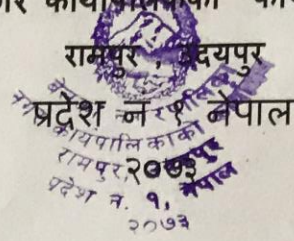 नगर कार्यपालिकाको का
रामपुर , उदयपुर
प्रदेश न १ नेपाल
२०७३
नगर कार्यपालिकाको
रामपुर, उदयपुर
प्रदेश न. १, नेपाल
२०७३